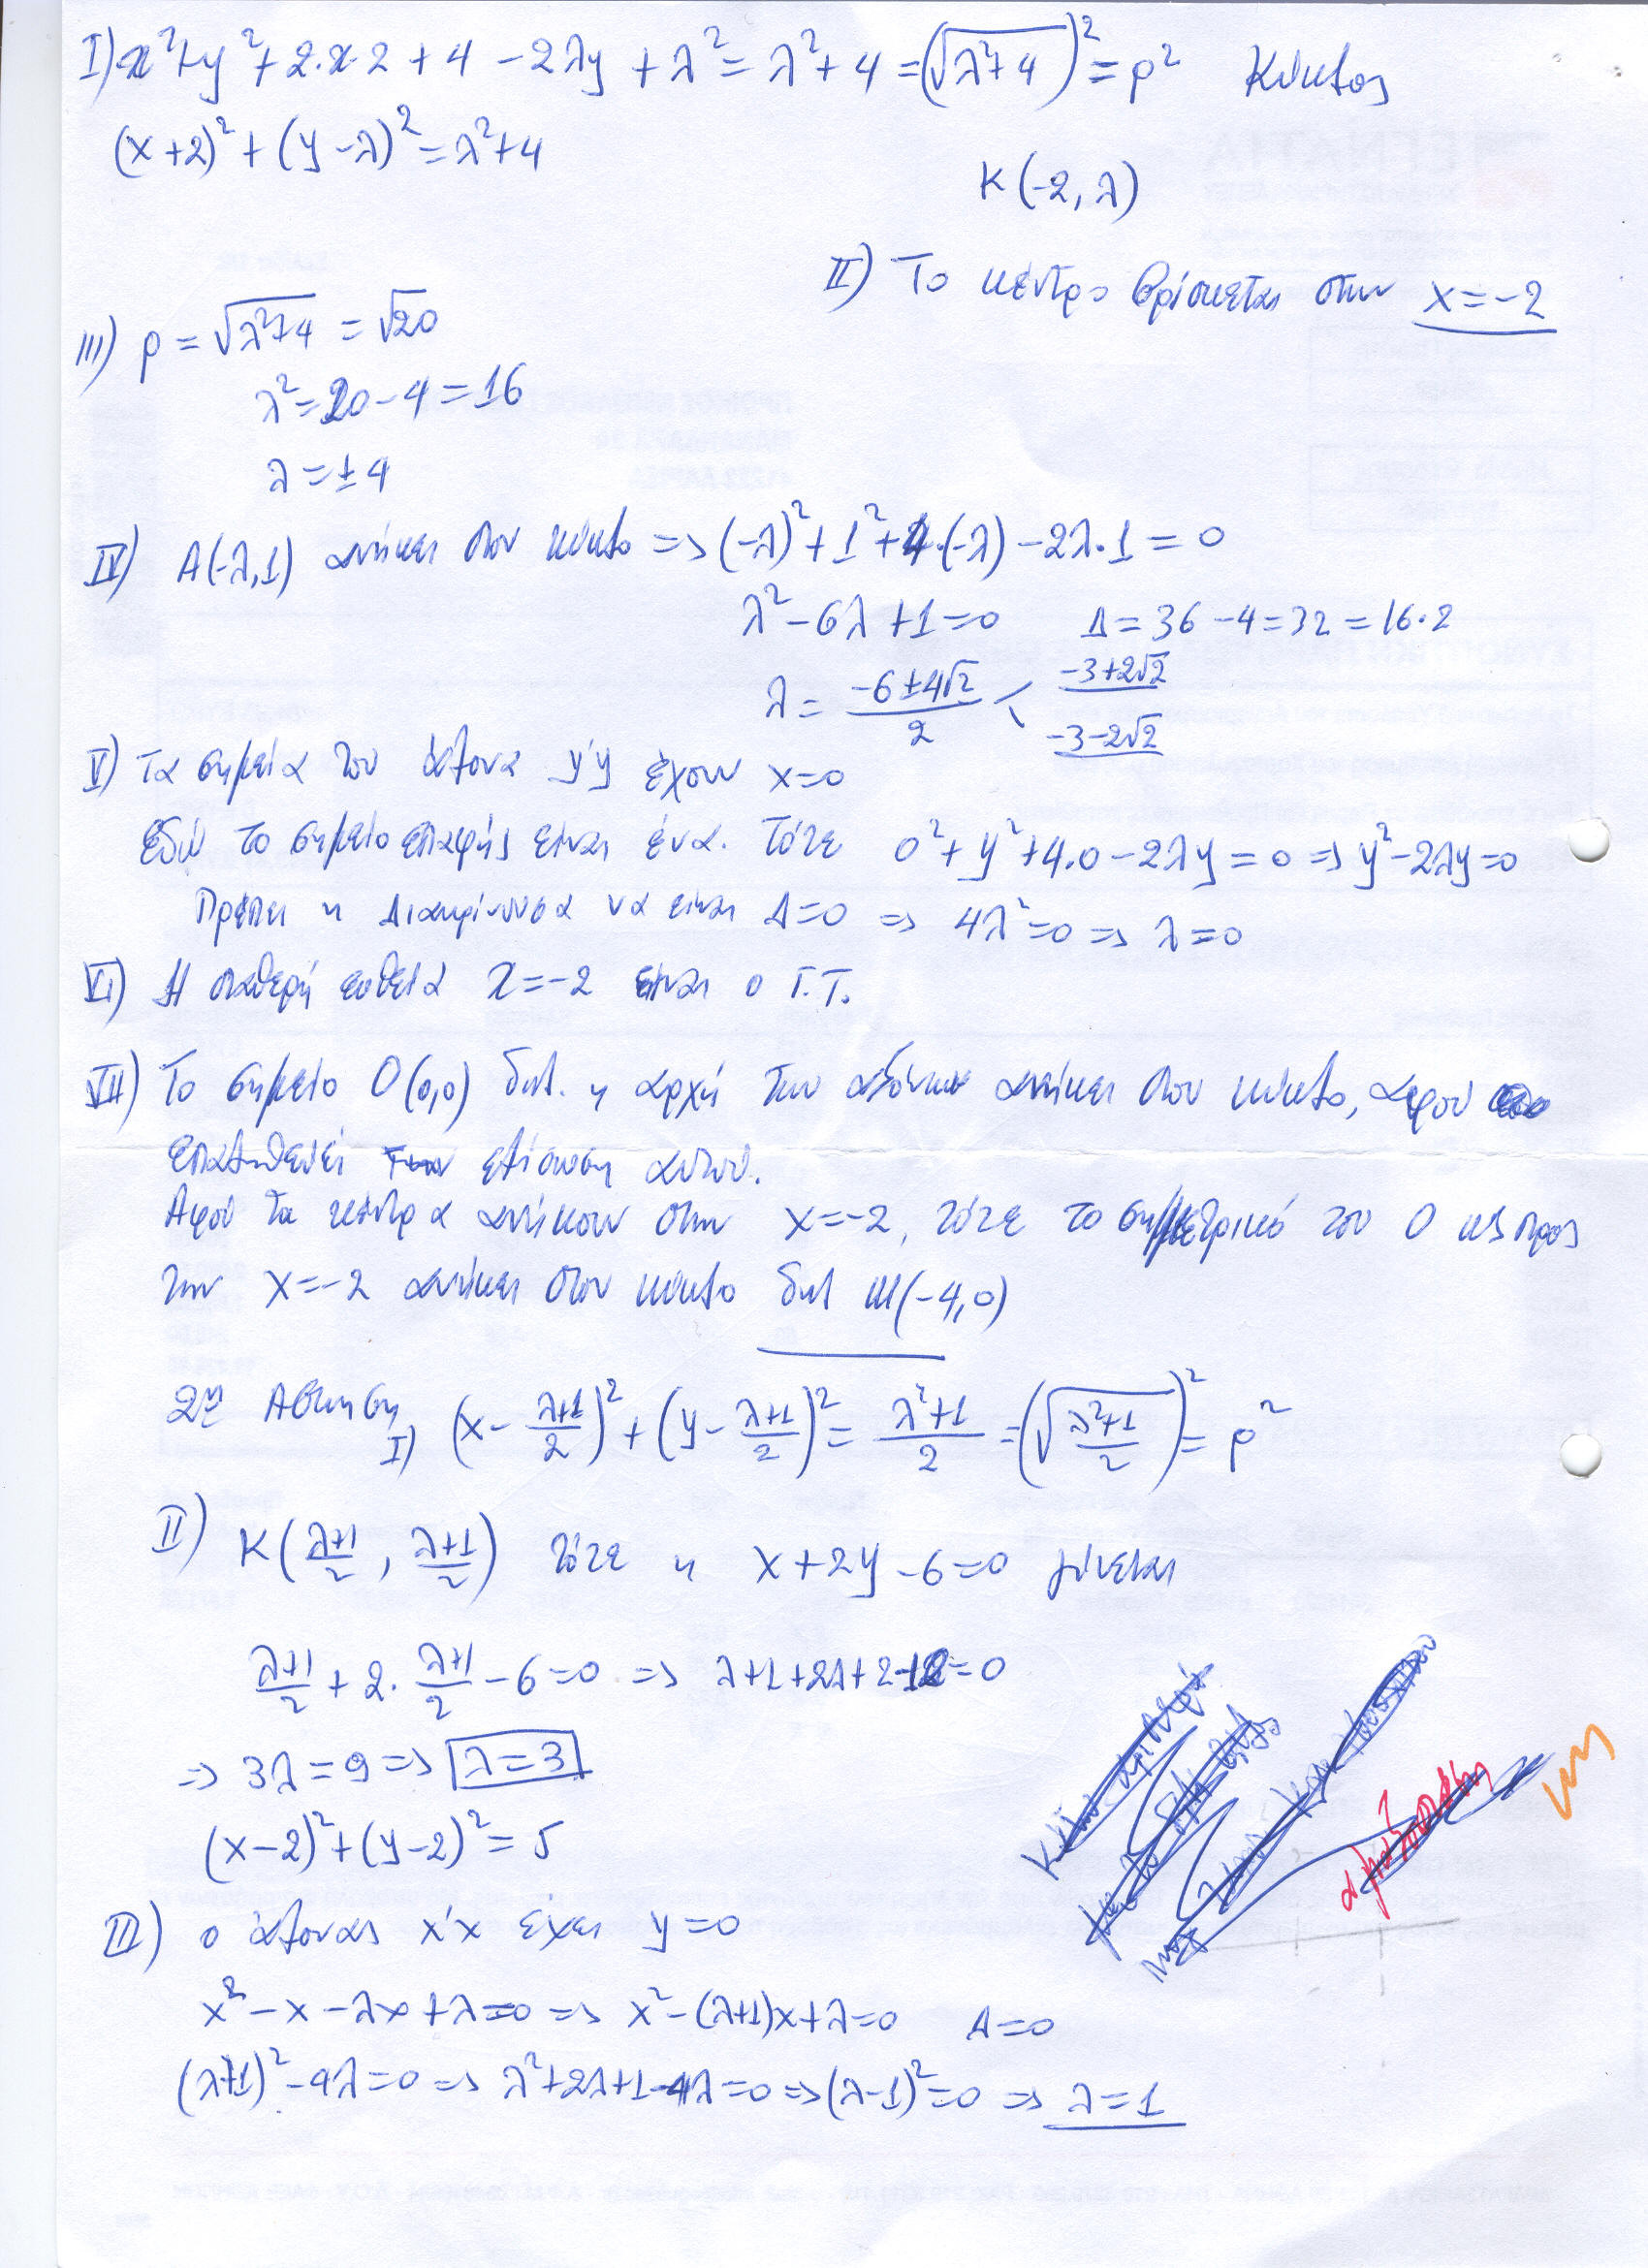 I) x²+y²+2·x·2+4-2λy+λ²=λ²+4=(√λ²+4)²=ρ² Κύκλος
(x+2)²+(y-λ)²=λ²+4
Κ(-2,λ)
II) Το κέντρο βρίσκεται στην x=-2
III) ρ=√λ²+4=√20
λ²=20-4=16
λ=±4
IV) Α(-λ,1) ανήκει στον κύκλο => (-λ)²+1²+4·(-λ)-2λ·1=0
λ²-6λ+1=0 Δ=36-4=32=16·2
λ= (-6±4√2)/2 < -3+2√2
-3-2√2
V) Τα σημεία του άξονα y'y έχουν x=0
Εδώ το σημείο επαφής είναι ένα. Τότε 0²+y²+4·0-2λy=0 => y²-2λy=0
Πρέπει η Διακρίνουσα να είναι Δ=0 => 4λ²=0 => λ=0
VI) Η σταθερή ευθεία x=-2 είναι ο Γ.Τ.
VII) Το σημείο Ο(0,0) δηλ. η αρχή των αξόνων ανήκει στον κύκλο, αφού
επαληθεύει την εξίσωση αυτού.
Αφού τα κέντρα ανήκουν στην x=-2, τότε το συμμετρικό του Ο ως προς
την x=-2 ανήκει στον κύκλο δηλ Μ(-4,0)
2η Άσκηση
I) (x-(λ+1)/2)²+(y-(λ+1)/2)²=(λ²+1)/2=(√(λ²+1)/2)²=ρ²
II) Κ((λ+1)/2, (λ+1)/2) τότε η x+2y-6=0 γίνεται
(λ+1)/2+2·(λ+1)/2-6=0 => λ+1+2λ+2-12=0
=> 3λ=9 => λ=3
(x-2)²+(y-2)²=5
III) ο άξονας x'x έχει y=0
x²-x-λx+λ=0 => x²-(λ+1)x+λ=0 Δ=0
(λ+1)²-4λ=0 => λ²+2λ+1-4λ=0 => (λ-1)²=0 => λ=1